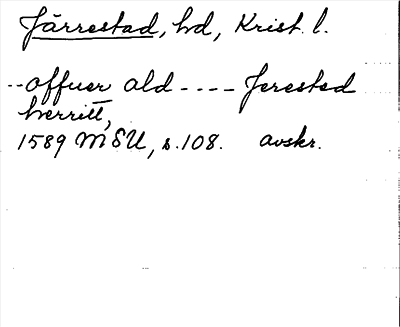 Järrestad, hd, Krist. l.
--offuer ald---- Jerested
herritt,
1589 MSU, s.108. avskr.